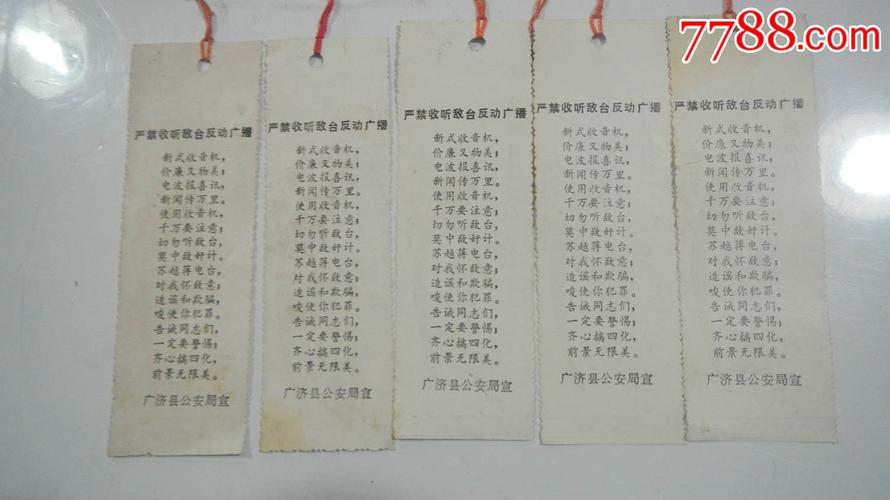 7788.com
严禁收听敌台反动广播
新式收音机，
价廉又物美；
电波报喜讯，
新闻传万里。
使用收音机，
千万要注意；
切勿听敌台，
莫中敌奸计。
苏越蒋电台，
对我怀敌意；
造谣和欺骗，
唆使你犯罪。
告诫同志们，
一定要警惕；
齐心搞四化，
前景无限美。
广济县公安局宣
严禁收听敌台反动广播
新式收音机，
价廉又物美；
电波报喜讯，
新闻传万里。
使用收音机，
千万要注意；
切勿听敌台，
莫中敌奸计。
苏越蒋电台，
对我怀敌意；
造谣和欺骗，
唆使你犯罪。
告诫同志们，
一定要警惕；
齐心搞四化，
前景无限美。
广济县公安局宣
严禁收听敌台反动广播
新式收音机，
价廉又物美；
电波报喜讯，
新闻传万里。
使用收音机，
千万要注意；
切勿听敌台，
莫中敌奸计。
苏越蒋电台，
对我怀敌意；
造谣和欺骗，
唆使你犯罪。
告诫同志们，
一定要警惕；
齐心搞四化，
前景无限美。
广济县公安局宣
严禁收听敌台反动广播
新式收音机，
价廉又物美；
电波报喜讯，
新闻传万里。
使用收音机，
千万要注意；
切勿听敌台，
莫中敌奸计。
苏越蒋电台，
对我怀敌意；
造谣和欺骗，
唆使你犯罪。
告诫同志们，
一定要警惕；
齐心搞四化，
前景无限美。
广济县公安局宣
严禁收听敌台反动广播
新式收音机，
价廉又物美；
电波报喜讯，
新闻传万里。
使用收音机，
千万要注意；
切勿听敌台，
莫中敌奸计。
苏越蒋电台，
对我怀敌意；
造谣和欺骗，
唆使你犯罪。
告诫同志们，
一定要警惕；
齐心搞四化，
前景无限美。
广济县公安局宣